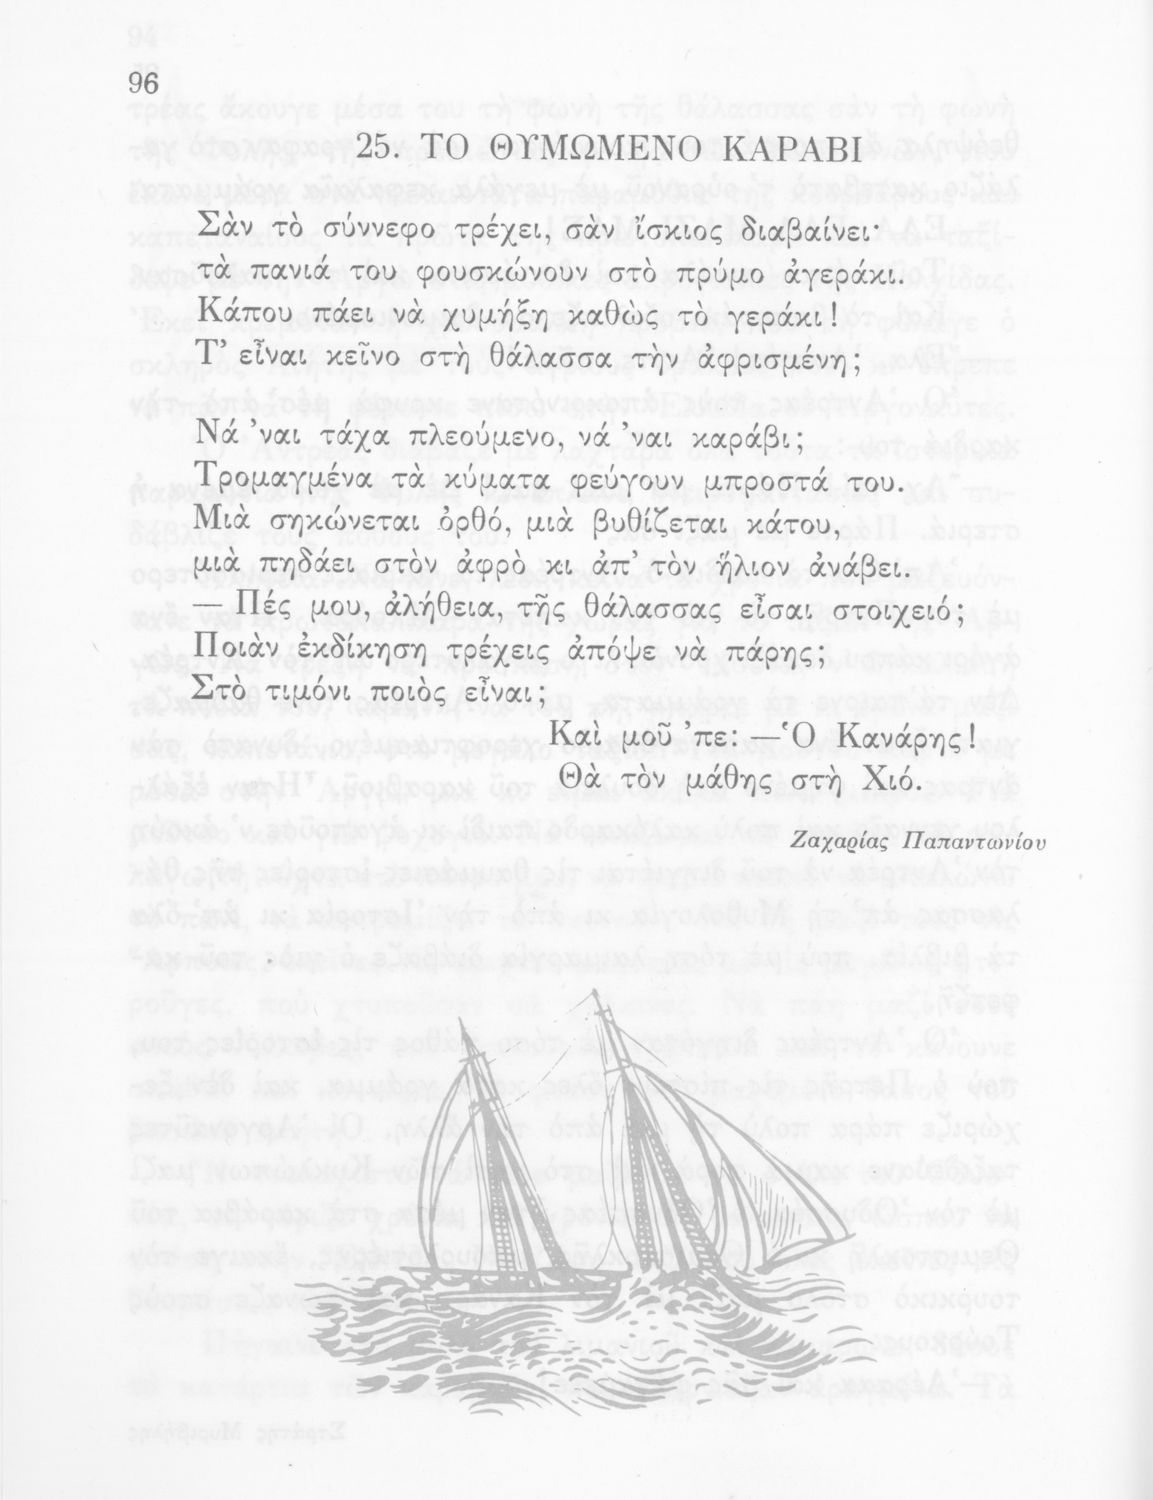 96
25. ΤΟ ΘΥΜΩΜΕΝΟ ΚΑΡΑΒΙ
Σὰν τὸ σύννεφο τρέχει, σὰν ἴσκιος διαβαίνει·
τὰ πανιά του φουσκώνουν στὸ πρύμο ἀγεράκι.
Κάπου πάει νὰ χυμήξη καθὼς τὸ γεράκι!
Τ’ εἶναι κεῖνο στὴ θάλασσα τὴν ἀφρισμένη;
Νά ’ναι τάχα πλεούμενο, νά ’ναι καράβι;
Τρομαγμένα τὰ κύματα φεύγουν μπροστά του.
Μιὰ σηκώνεται ὀρθό, μιὰ βυθίζεται κάτου,
μιὰ πηδάει στὸν ἀφρὸ κι ἀπ’ τὸν ἥλιον ἀνάβει.
— Πές μου, ἀλήθεια, τῆς θάλασσας εἶσαι στοιχειό;
Ποιὰν ἐκδίκηση τρέχεις ἀπόψε νὰ πάρης;
Στὸ τιμόνι ποιὸς εἶναι;
Καὶ μοῦ ’πε: —Ὁ Κανάρης!
Θὰ τὸν μάθης στὴ Χιό.
Ζαχαρίας Παπαντωνίου